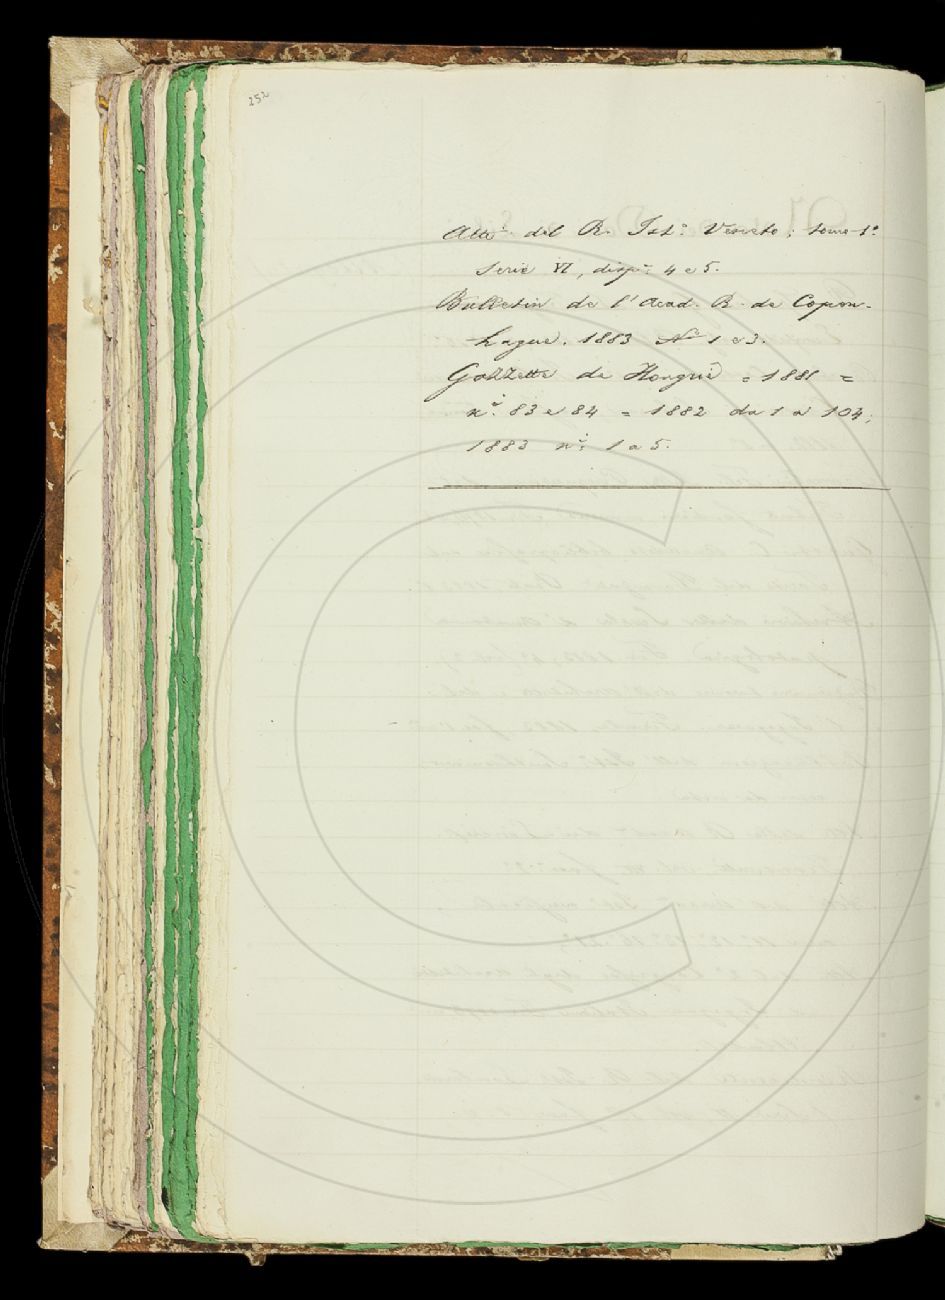 252
Atti del R. Ist.º Veneto; tomo 1º
Serie VI, disp.e 4 e 5.
Bulletin de l'Acad. R. de Copen-
hague. 1883 Nº 1 e 3.
Gazzette de Hongrie = 1881 =
nⁱ. 83 e 84 = 1882 da 1 a 104;
1883 nⁱ: 1 a 5.